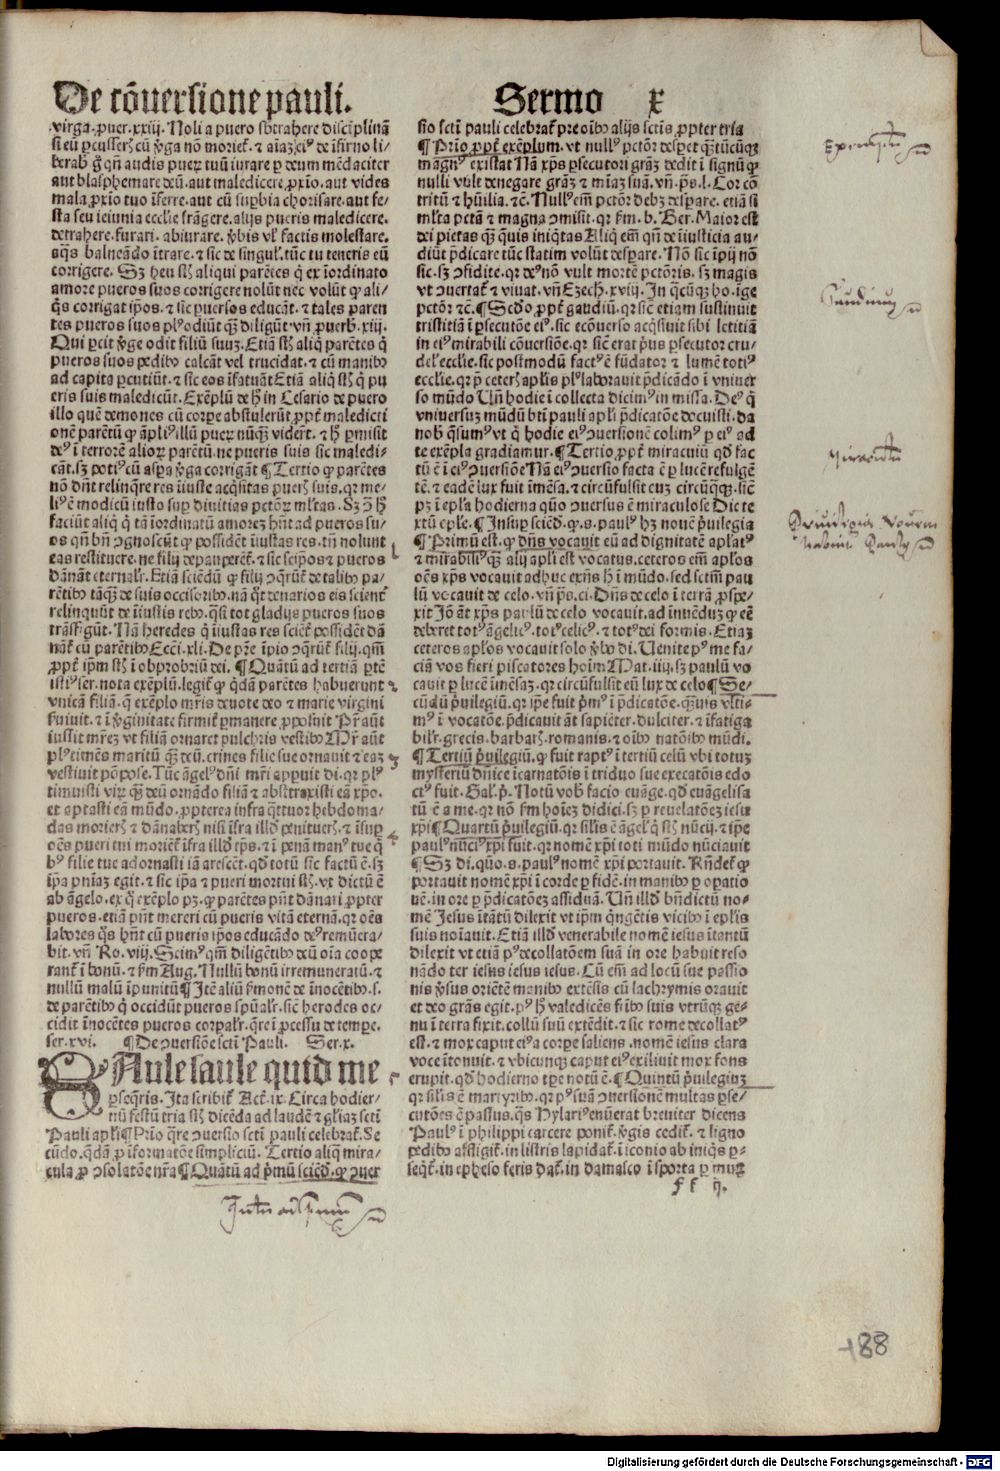 De cōuersione pauli.
Sermo x
virga. ꝓuer. xxiij. Noli a puero sbtrahere disciplinā
si eū ꝑcusserꝭ cū ꝟga nō moriet᷑. ⁊ aīaꝫ eiꝰ de īferno li
berabꝭ qn̄ audis pueꝝ tuū iurare ꝑ deum mēdaciter
aut blasphemare deū. aut maledicere ꝓxīo. aut vides
mala ꝓxīo tuo īferre. aut cū suꝑbia chorisare. aut fe-
sta seu ieiunia ecclīe frāgere. alijs pueris maledicere.
detrahere. furari. abiurare. ꝟbis vl̓ factis molestare.
balneādo ītrare. ⁊ sic de singul̓. tūc tu teneris eū
corrigere. Sꝫ heu sꝉ aliqui parētes q̇ ex īordinato
amore pueros suos corrigere nolūt nec volūt ꝙ ali-
q̇s corrigat ip̄os. ⁊ sic ꝑuersos educāt. ⁊ tales paren
tes pueros suos plꝰ odiūt qꝫ diligūt. vn̄ ꝓuerb. xiij.
Qui ꝑcit ꝟge odit filiū suuꝫ. Etiā sꝉ aliq̇ parētes q̇
pueros suos pedibꝰ calcāt vel trucidāt. ⁊ cū manibꝰ
ad capita ꝑcutiūt. ⁊ sic eos īfatuāt Etiā aliq̇ sꝉ q̇ pu
eris suis maledicūt. Exēplū de h̄ in Cesario de puero
illo quē demones cū corꝑe abstulerūt ꝓpt̄ maledicti
onē parētū ꝙ āpliꝰ illū pueꝝ nūqꝫ viderēt. ⁊ h̄ ꝑmisit
deꝰ ī terrorē alioꝝ parētū. ne pueris suis sic maledi-
cāt. sꝫ potiꝰ cū asꝑa ꝟga corrigāt ¶ Tertio ꝙ parētes
nō dn̄t relinq̄re res īiuste acq̇sitas puerꝭ suis. qꝛ me-
liꝰ ē modicū iusto suꝑ diuitias pctōꝝ ml̓tas. Sꝫ ꝯ̄ h̄
faciūt aliq̇ q̇ tā īordinatū amoreꝫ hn̄t ad pueros su-
os qn̄ bn̄ ꝯgnoscūt ꝙ possidēt īiustas res. tn̄ nolunt
eas restituere. ne filij depauperēt᷑. ⁊ sic seip̄os ⁊ pueros
dānāt eternal̓r. Etiā sciēdū ꝙ filij ꝯq̄rūt᷑ de talibꝰ pa-
rētibꝰ tāqꝫ de suis occisoribꝰ. nā q̇t denarios eis sciēnt᷑
relinquūt de īiustis rebꝰ. q̇si tot gladijs pueros suos
trāsfigūt. Nā heredes q̇ iustas res sciēt᷑ possidēt dā
nāt᷑ cū parētibꝰ Ecci. xli. De pr̄e īpio ꝯq̄rūt᷑ filij. qm̄
ꝓpt̄ ip̄m sꝉ ī obprobriū dei. ¶ Quātū ad tertiā ꝑtē
istiꝰ ser. nota exēplū. legit᷑ ꝙ q̇dā parētes habuerunt
vnicā filiā. q̄ exēplo mr̄is deuote deo ⁊ marie virgini
fuiuit. ⁊ ī ꝟginitate firmit᷑ ꝑmanere ꝓposuit Pr̄ aūt
iussit mr̄eꝫ vt filiā ornaret pulchris vestibꝰ Mr̄ aūt
plꝰ timēs maritū qꝫ deū. crines filie sue ornauit ⁊ eaꝫ
vestiuit pōpose. Tūc āgelꝰ dn̄i mr̄i apꝑuit di. qꝛ plꝰ
timuisti viꝝ qꝫ deū ornādo filiā ⁊ abstraxisti eā xp̄o.
et aptasti eā mūdo. ꝓpterea infra q̇ttuor hebdoma-
das morierꝭ ⁊ dānaberꝭ nisi īfra illd̓ penituerꝭ. ⁊ īsuꝑ
oēs pueri tui moriēt᷑ īfra illd̓ tp̄s. ⁊ ī penā manꝰ tue q̇
bꝰ filie tue adornasti iā arescēt. qd̓ totū sic factū ē. sꝫ
ip̄a pn̄iaꝫ egit. ⁊ sic ip̄a ⁊ pueri mortui sꝉ. vt dictū ē
ab āgelo. ex q̇ exēplo pꝫ. ꝙ parētes pn̄t dānari ꝓpter
pueros. etiā pn̄t mereri cū pueris vitā eternā. qꝛ oēs
labores q̇s hn̄t cū pueris ip̄os educādo deꝰ remūera-
bit. vn̄ Ro. viij. Scimꝰ qm̄ diligētibꝰ deū oīa coope
rant᷑ ī bonū. ⁊ ẜm Aug. Nullū bonū irremuneratū. ⁊
nullū malū īpunitū ¶ Itē aliū ẜmonē de īnocētibꝰ. s.
de parētibꝰ q̇ occidūt pueros spūal̓r. sicē herodes oc-
cidit īnocētes pueros corꝑal̓r. q̄re ī ꝓcessu de tempe.
ser. xvi. ¶ De ꝯuersiōe scti̓ Pauli. Ser. x.
SAule saule quid me
ꝑseq̄ris. Ita scribit᷑ Act̄. ix. Circa hodier-
nū festū tria sꝉ dicēda ad laudē ⁊ gl̓iaꝫ scti̓
Pauli apl̓i ¶ Prīo q̄re ꝯuersio scti̓ pauli celebrat᷑. Se
cūdo. q̄dā ꝓ īformatōe simpliciū. Tertio aliq̄ mira-
cula ꝓ ꝯsolatōe nr̄a ¶ Quātū ad pͥmū sciēd̓. ꝙ ꝯuer
sio scti̓ pauli celebrat᷑ pre oībꝰ alijs scti̓s ꝓpter tria
¶ Prīo ꝓpt̄ exēplum. vt nullꝰ pctōr desꝑet qꝫtūcūqꝫ
magnꝰ existat Nā xp̄s ꝑsecutori grāꝫ dedit ī signū ꝙ
nulli vult denegare grāꝫ ⁊ mīaꝫ suā. vn̄. ps̄. l. Cor cō
tritū ⁊ hūilia. ⁊c̄. Nullꝰ em̄ pctōr debꝫ desꝑare. etiā si
ml̓ta pctā ⁊ magna ꝯmisit. qꝛ ẜm. b. Ber. Maior est
dei pietas qꝫ q̇uis iniq̇tas Aliq̇ em̄ qn̄ de īiusticia au-
diūt p̄dicare tūc statim volūt desꝑare. Nō sic īpij nō
sic. sꝫ ꝯfidite. qꝛ deꝰ nō vult mortē pctōris. sꝫ magis
vt ꝯuertat᷑ ⁊ viuat. vn̄ Ezech. xviij. In q̇cūqꝫ ho. īge
pctōr ⁊c̄. ¶ Scd̓o ꝓpt̄ gaudiū. qꝛ sicē etiam sustinuit
tristitiā ī ꝑsecutōe eiꝰ. sic ecōuerso acq̇siuit sibi letitiā
in eiꝰ mirabili cōuersiōe. qꝛ sicē erat pͥus ꝑsecutor cru-
del̓ ecclīe. sic postmodū factꝰ ē fūdator ⁊ lumē totiꝰ
ecclīe. qꝛ p̄ ceterꝭ apl̓is plꝰ laborauit p̄dicādo ī vniuer
so mūdo Un̄ hodie ī collecta dicimꝰ in missa. Deꝰ q̇
vniuersuꝫ mūdū bt̄i pauli apl̓i p̄dicatōe docuisti. da
nobꝭ q̄sumꝰ vt q̇ hodie eiꝰ ꝯuersionē colimꝰ ꝑ eiꝰ ad
te exēpla gradiamur. ¶ Tertio ꝓpt̄ miraculū qd̓ fac
tū ē ī eiꝰ ꝯuersiōe Nā eiꝰ ꝯuersio facta ē ꝑ lucē refulgē
tē. ⁊ eadē lux fuit īmēsa. ⁊ circūfulsit euꝫ circūq̇qꝫ. sicē
pꝫ ī epl̓a hodierna quo ꝯuersus ē miraculose Dic te
xtū epl̓e. ¶ Insuꝑ sciēd̓. ꝙ. s. paulꝰ hꝫ nouē pͥuilegia
¶ Primū est. ꝙ dn̄s vocauit eū ad dignitatē apl̓atꝰ
⁊ mirabiliꝰ qꝫ alij apl̓i est vocatus. ceteros em̄ apl̓os
oēs xp̄s vocauit adhuc exn̄s h̄ ī mūdo. sed sctm̄ pau
lū vocauit de celo. vn̄ ps̄. ci. Dn̄s de celo ī terrā ꝓspe-
xit Jō āt xp̄s paulū de celo vocauit. ad īnuēduꝫ ꝙ eē
deberet totꝰ āgelicꝰ. totꝰ celicꝰ. ⁊ totꝰ dei formis. Etiaꝫ
ceteros apl̓os vocauit solo ꝟbo di. Uenite pꝰ me fa-
ciā vos fieri piscatores hoīm Mat. iiij. sꝫ paulū vo
cauit ꝑ lucē īmēsaꝫ. qꝛ circūfulsit eū lux de celo ¶ Se-
cūdū pͥuilegiū. qꝛ ip̄e fuit pͥmꝰ ī p̄dicatōe. qꝫuis vlti-
mꝰ ī vocatōe. p̄dicauit āt sapiēter. dulciter. ⁊ īfatiga
bil̓r. grecis. barbarꝭ. romanis. ⁊ oībꝰ natōibꝰ mūdi.
¶ Tertiū pͥuilegiū. ꝙ fuit raptꝰ ī tertiū celū vbi totuꝫ
mysteriū dn̄ice īcarnatōis ī triduo sue execatōis edo
ctꝰ fuit. Gal̓. pͥ. Notū vobꝭ facio euāge. qd̓ euāgelisa
tū ē a me. qꝛ nō ẜm hoīeꝫ didici. sꝫ ꝑ reuelatōeꝫ iesu
xp̄i ¶ Quartū pͥuilegiū. qꝛ sil̓is ē āgel̓ q̇ sꝉ nūcij. ⁊ ip̄e
paulꝰ nūciꝰ xp̄i fuit. qꝛ nomē xp̄i toti mūdo nūciauit
¶ Sꝫ di. quo. s. paulꝰ nomē xp̄i portauit. Rn̄det᷑ ꝙ
portauit nomē xp̄i ī corde ꝑ fidē. in manibꝰ ꝑ oꝑatio
nē. in ore ꝑ p̄dicatōeꝫ assiduā. Un̄ illd̓ bn̄dictū no-
mē Jesus ītātū dilexit vt ip̄m q̇ngētis vicibꝰ ī epl̓is
suis noīauit. Etiā illd̓ venerabile nomē iesus ītantū
dilexit vt etiā pꝰ decollatōem suā in ore habuit reso
nādo ter iesus iesus iesus. Cū em̄ ad locū sue passio
nis ꝟsus oriētē manibꝰ extēsis cū lachrymis orauit
et deo grās egit. pꝰ h̄ valedicēs fr̄ibꝰ suis vtrūqꝫ ge-
nu ī terra fixit. collū suū extēdit. ⁊ sic rome decollatꝰ
est. ⁊ mox caput eiꝰ a corꝑe saliens. nomē iesus clara
voce ītonuit. ⁊ vbicunqꝫ caput eiꝰ exiliuit mox fons
erupit. qd̓ hodierno tꝑe notū ē. ¶ Quintū pͥuilegiuꝫ
qꝛ sil̓is ē martyribꝰ. qꝛ pꝰ suā ꝯuersionē multas ꝑse-
cutōes ē passus. q̇s Hylariꝰ enūerat breuiter dicens
Paulꝰ ī philippi carcere ponit᷑. ꝟgis cedit᷑. ⁊ ligno
pedibꝰ affigit᷑. in listris lapidat᷑. ī iconio ab iniq̇s ꝑ-
seq̇t᷑. in epheso feris dat᷑. in damasco ī sporta ꝑ muꝝ
ff ij.
188
Digitalisierung gefördert durch die Deutsche Forschungsgemeinschaft - DFG